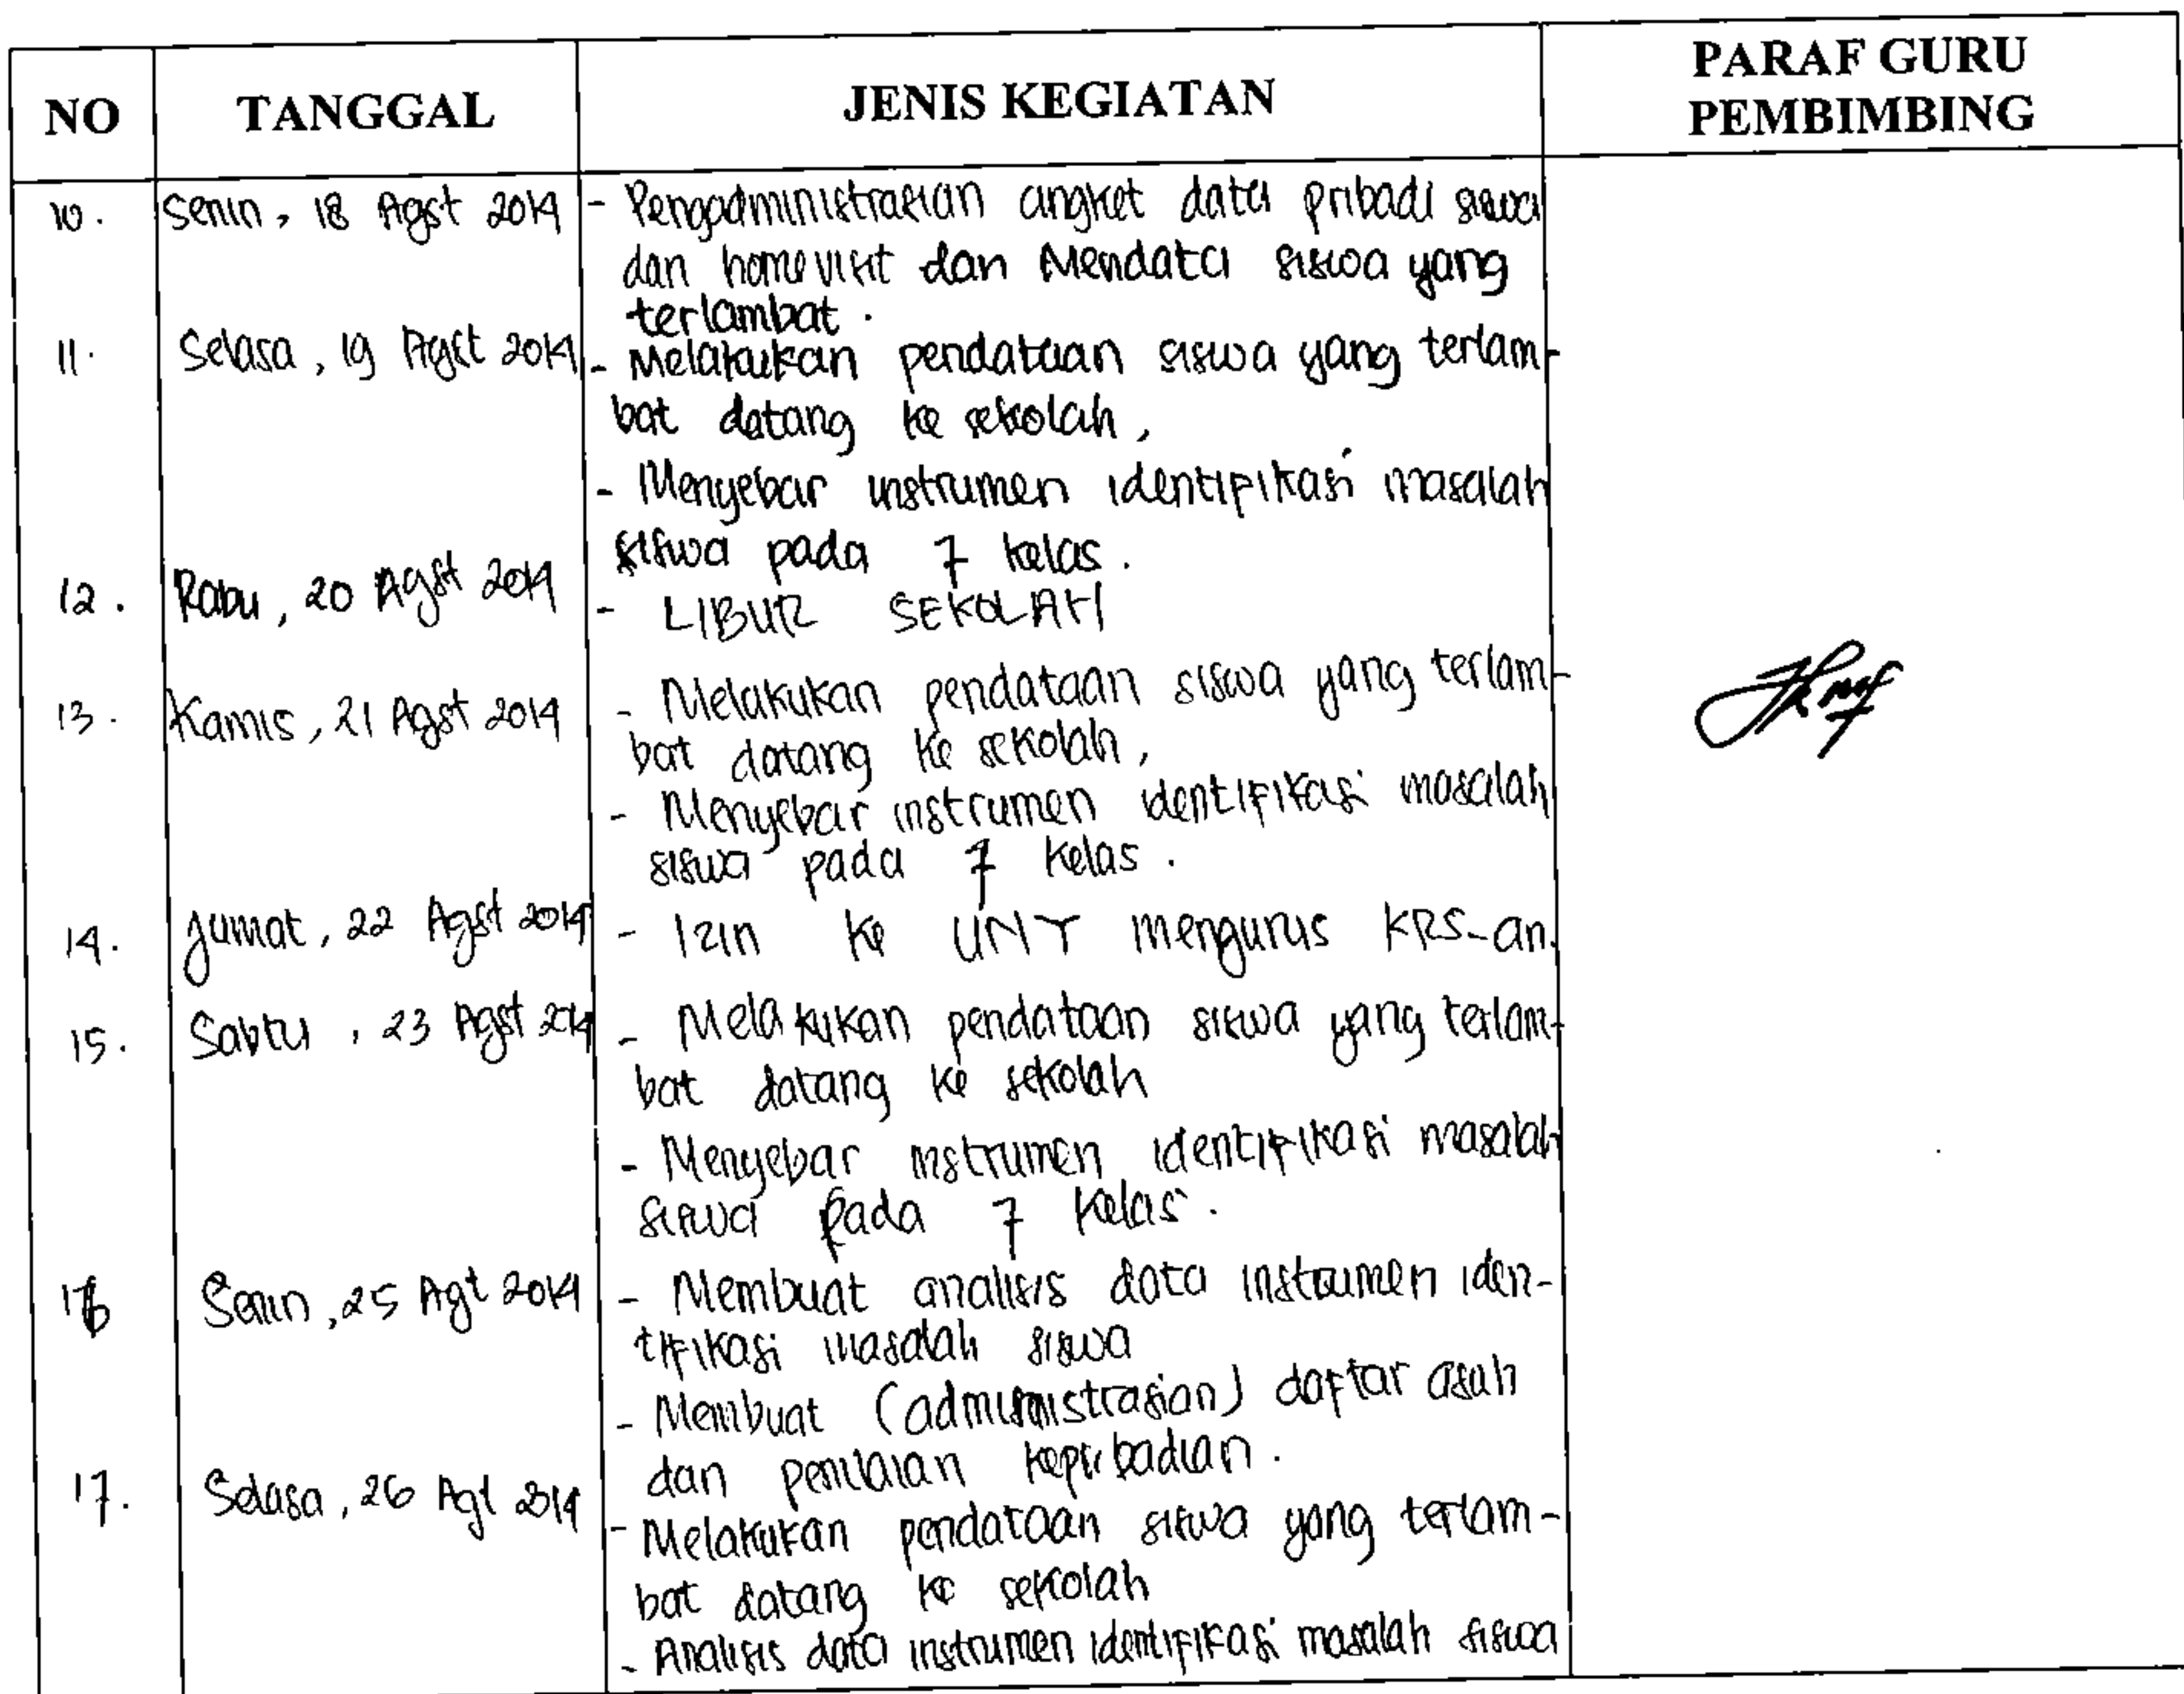 NO TANGGAL JENIS KEGIATAN PARAF GURU PEMBIMBING
10. Senin, 18 Agst 2014 - Pengadministrasian angket data pribadi siswa
dan home visit dan Mendata siswa yang
terlambat.
11. Selasa, 19 Agst 2014 - Melakukan pendataan siswa yang terlam-
bat datang ke sekolah,
- Menyebar instrumen identifikasi masalah
siswa pada 7 kelas.
12. Rabu, 20 Agst 2014 - LIBUR SEKOLAH
13. Kamis, 21 Agst 2014 - Melakukan pendataan siswa yang terlam-
bat datang ke sekolah,
- Menyebar instrumen identifikasi masalah
siswa pada 7 kelas.
14. Jumat, 22 Agst 2014 - Izin ke UNY mengurus KRS-an.
15. Sabtu, 23 Agst 2014 - Melakukan pendataan siswa yang terlam-
bat datang ke sekolah
- Menyebar instrumen identifikasi masalah
siswa pada 7 kelas.
16 Senin, 25 Agt 2014 - Membuat analisis data instrumen iden-
tifikasi masalah siswa
- Membuat (administrasian) daftar asuh
dan penilaian kepribadian.
17. Selasa, 26 Agt 2014 - Melakukan pendataan siswa yang terlam-
bat datang ke sekolah
- Analisis data instrumen identifikasi masalah siswa